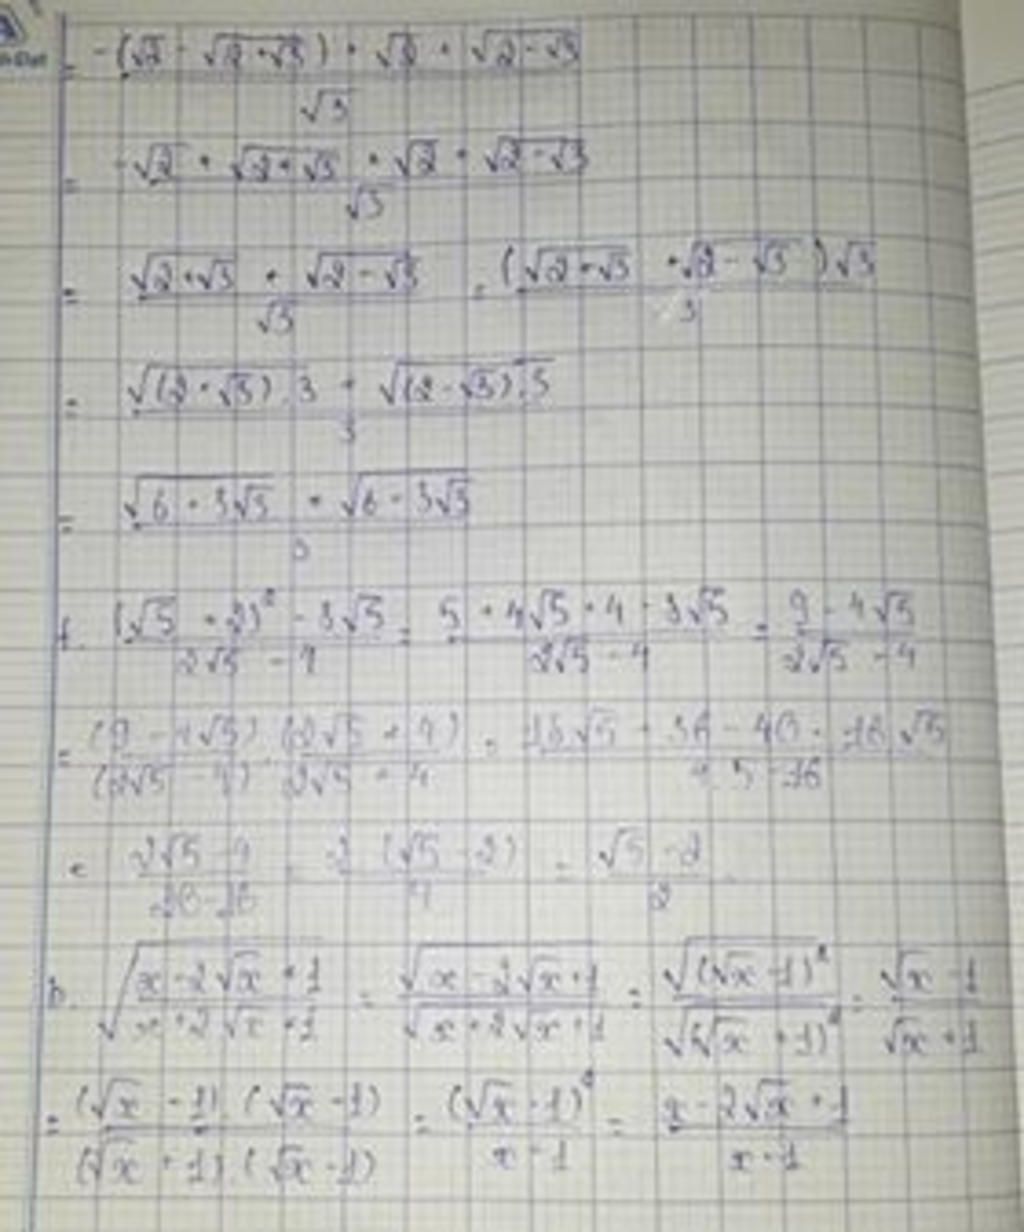 = -(√2 - √(2+√3)) + √2 + √(2-√3) / √3
= -√2 + √(2+√3) + √2 + √(2-√3) / √3
= √(2+√3) + √(2-√3) / √3 = (√(2+√3) + √(2-√3))√3 / 3
= √((2+√3).3) + √((2-√3).3) / 3
= √(6+3√3) + √(6-3√3) / 3
f. (√5 + 2)² - 8√5 / 2√5 - 4 = 5 + 4√5 + 4 - 8√5 / 2√5 - 4 = 9 - 4√5 / 2√5 - 4
= (9 - 4√5).(2√5 + 4) / (2√5 - 4).2√5 + 4 = 18√5 + 36 - 40 - 16√5 / 4.5 - 16
= 2√5 - 4 / 20-16 = 2(√5 - 2) / 4 = √5 - 2 / 2
h. √(x-2√x+1 / x+2√x+1) = √(x-2√x+1) / √(x+2√x+1) = √((√x-1)²) / √((√x+1)²) = √x-1 / √x+1
= (√x-1).(√x-1) / (√x+1).(√x-1) = (√x-1)² / x-1 = x-2√x+1 / x-1